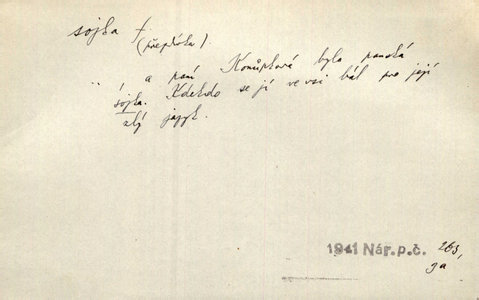 sojka f.
(přepáska).
.. í a paní Konůpková byla panská
sojka. Kdekdo se jí ve vsi bál pro její
zlý jazyk.
1941 Nár.p.č. 263,
3a